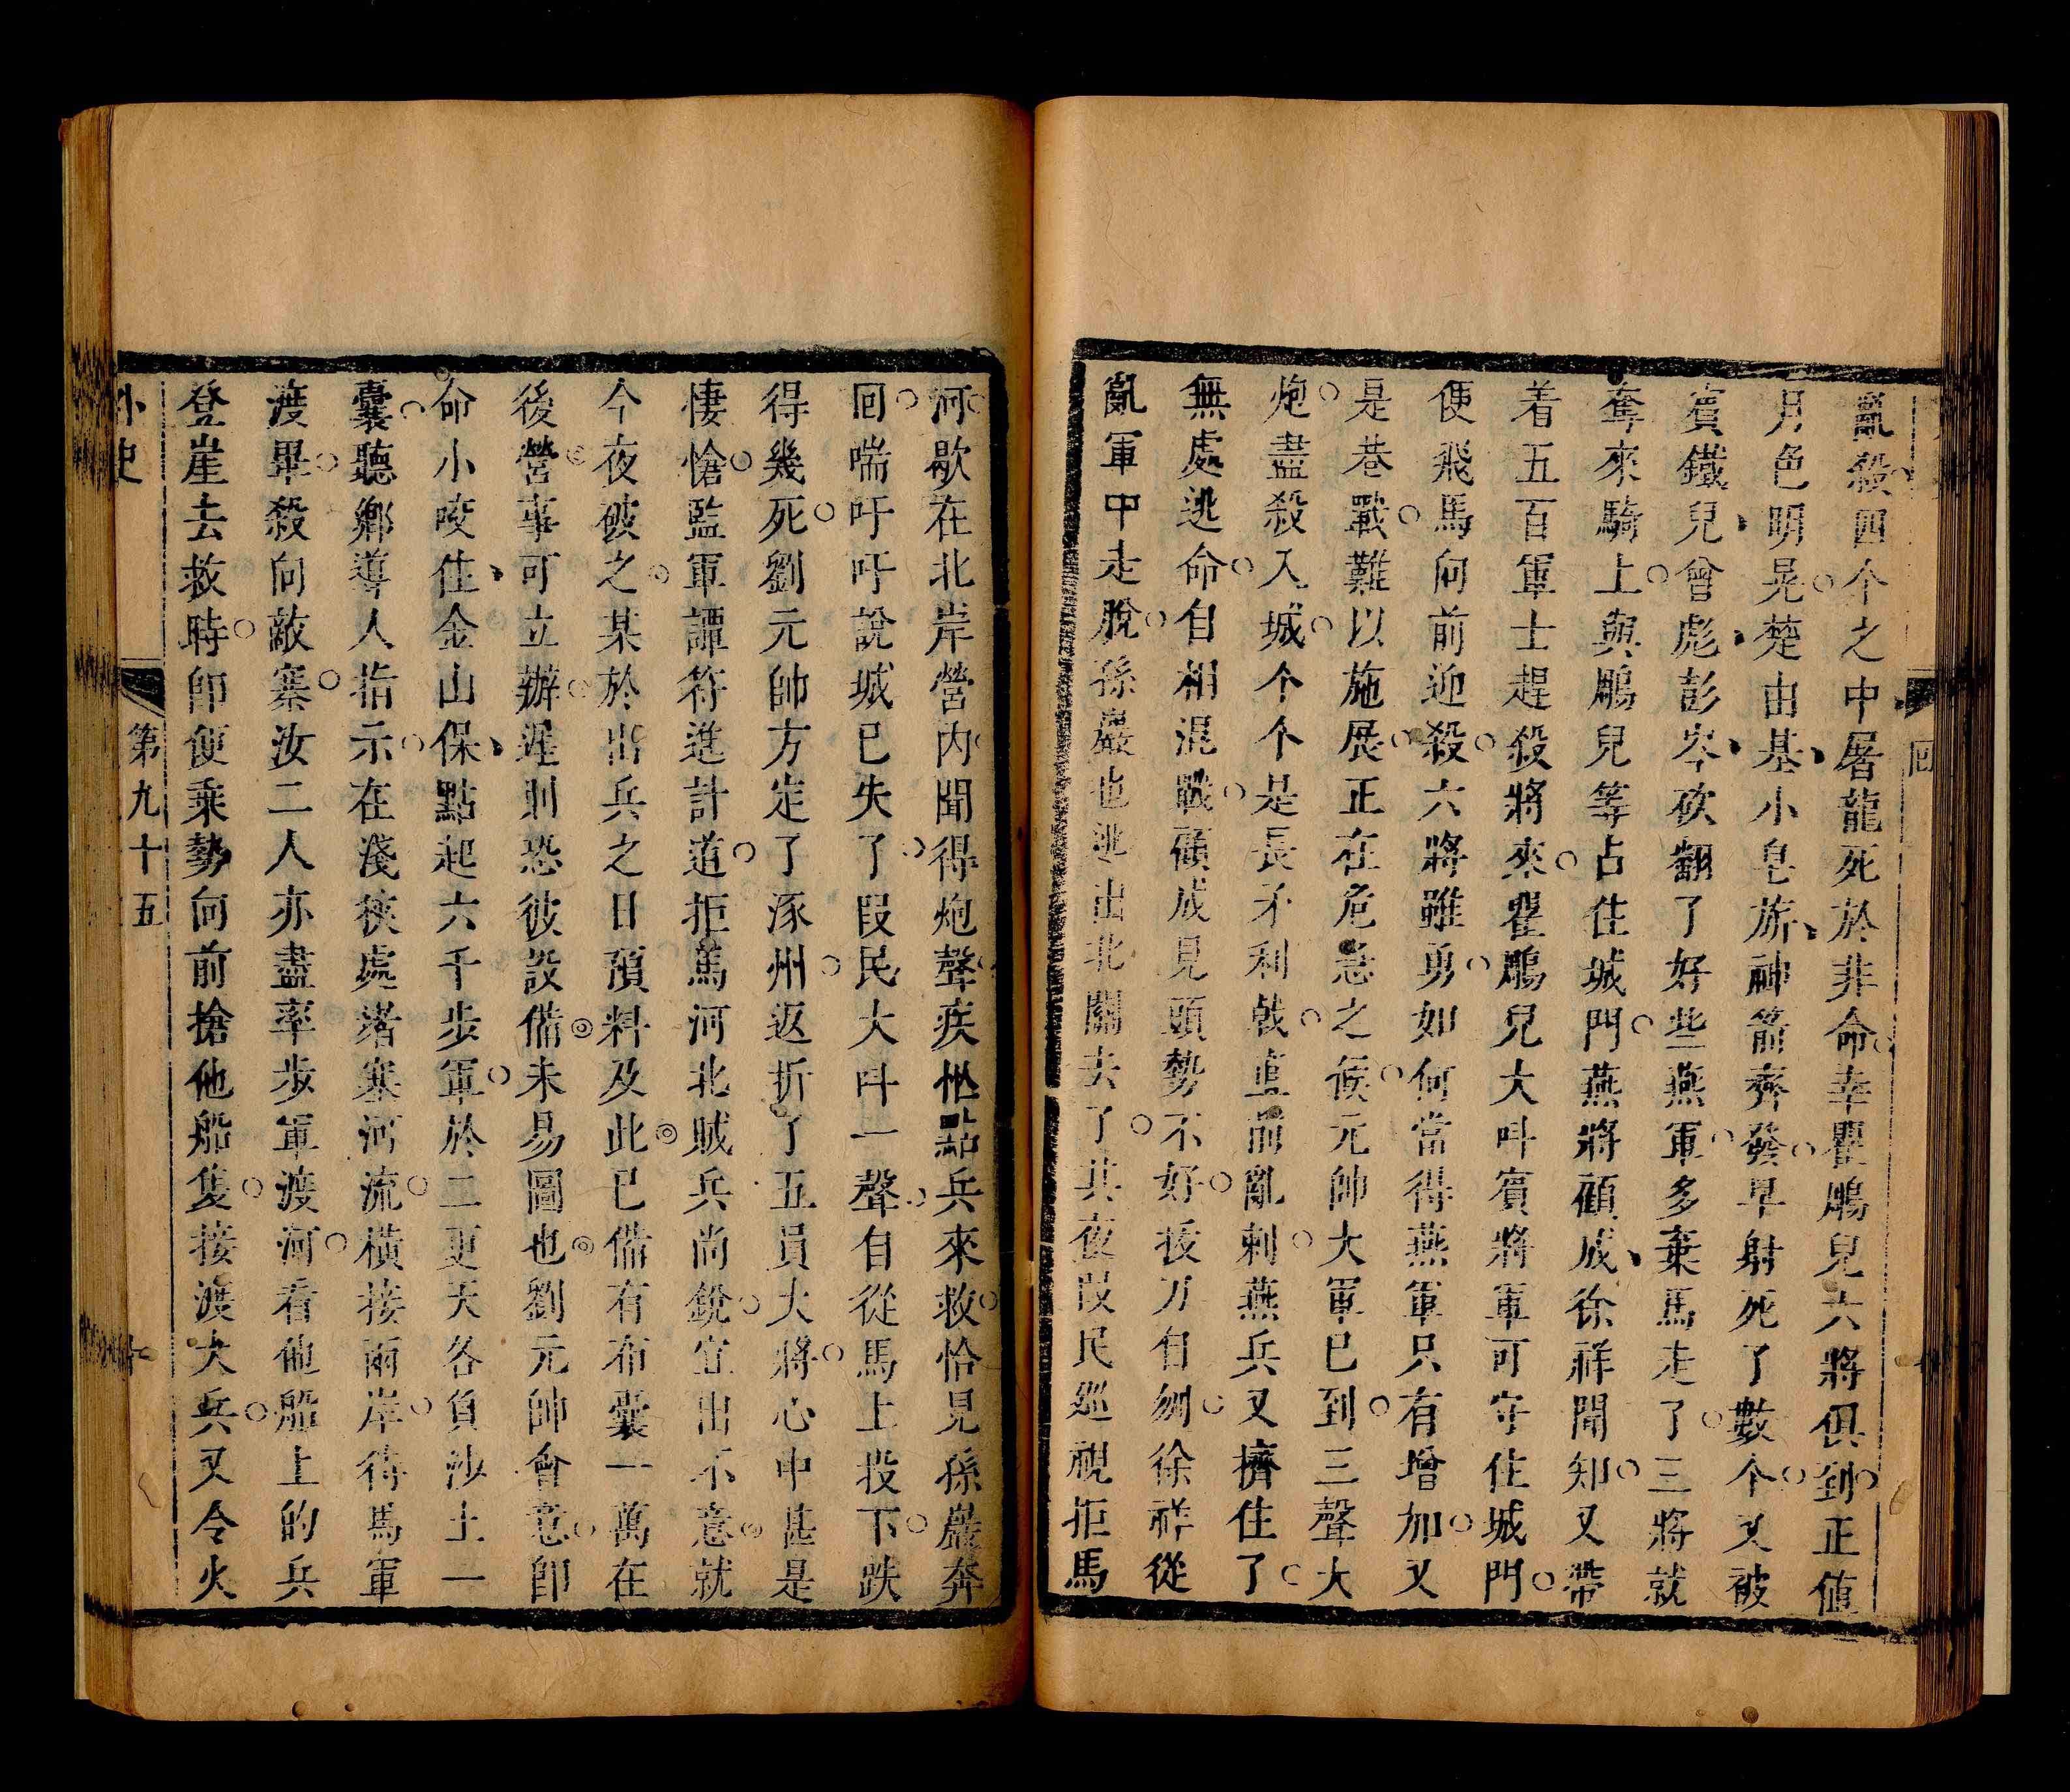 亂殺四个之中屠龍死於非命幸瞿鵰兒六將俱到正值
月色明晃楚由基小皂旂神箭齊發早射死了數个又被
賓鐵兒曾彪彭岑砍翻了好些燕軍多棄馬走了三將就
奪來騎上與鵰兒等占住城門燕將顧成徐祥聞知又帶
着五百軍士趕殺將來瞿鵰兒大呌賓將軍可守住城門
便飛馬向前迎殺六將雖勇如何當得燕軍只有增加又
是巷戰難以施展正在危急之候元帥大軍已到三聲大
炮盡殺入城个个是長矛利戟直前亂刺燕兵又擠住了
無處逃命自相混戰顧成見頭勢不好拔刀自刎徐祥從
亂軍中走脫孫巖也逃出北關去了其夜段民巡視拒馬
河歇在北岸營內聞得炮聲疾忙點兵來救恰見孫巖奔
回喘吁吁說城已失了段民大呌一聲自從馬上投下跌
得幾死劉元帥方定了涿州返折了五員大將心中甚是
悽愴監軍譚符進計道拒馬河北賊兵尚銳宜出不意就
今夜破之某於出兵之日預料及此已備有布囊一萬在
後營事可立辦遲則恐彼設備未易圖也劉元帥會意即
命小咬住金山保點起六千步軍於二更天各負沙土一
囊聽鄉導人指示在淺狹處堵塞河流橫接兩岸待馬軍
渡畢殺向敵寨汝二人亦盡率步軍渡河看他船上的兵
登崖去救時卽便乘勢向前搶他船隻接渡大兵又令火
外史 第九十五